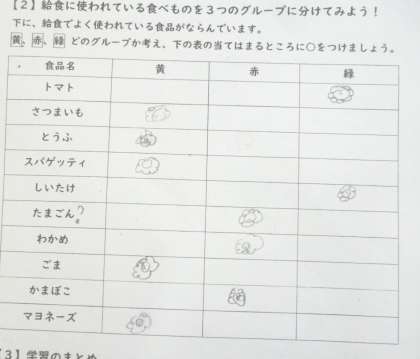 【２】給食に使われている食べものを３つのグループに分けてみよう！
下に、給食でよく使われている食品がならんでいます。
黄、赤、緑 どのグループか考え、下の表の当てはまるところに〇をつけましょう。
食品名 黄 赤 緑
トマト
さつまいも
とうふ
スパゲッティ
しいたけ
たまごん?
わかめ
ごま
かまぼこ
マヨネーズ
【３】学習のまとめ